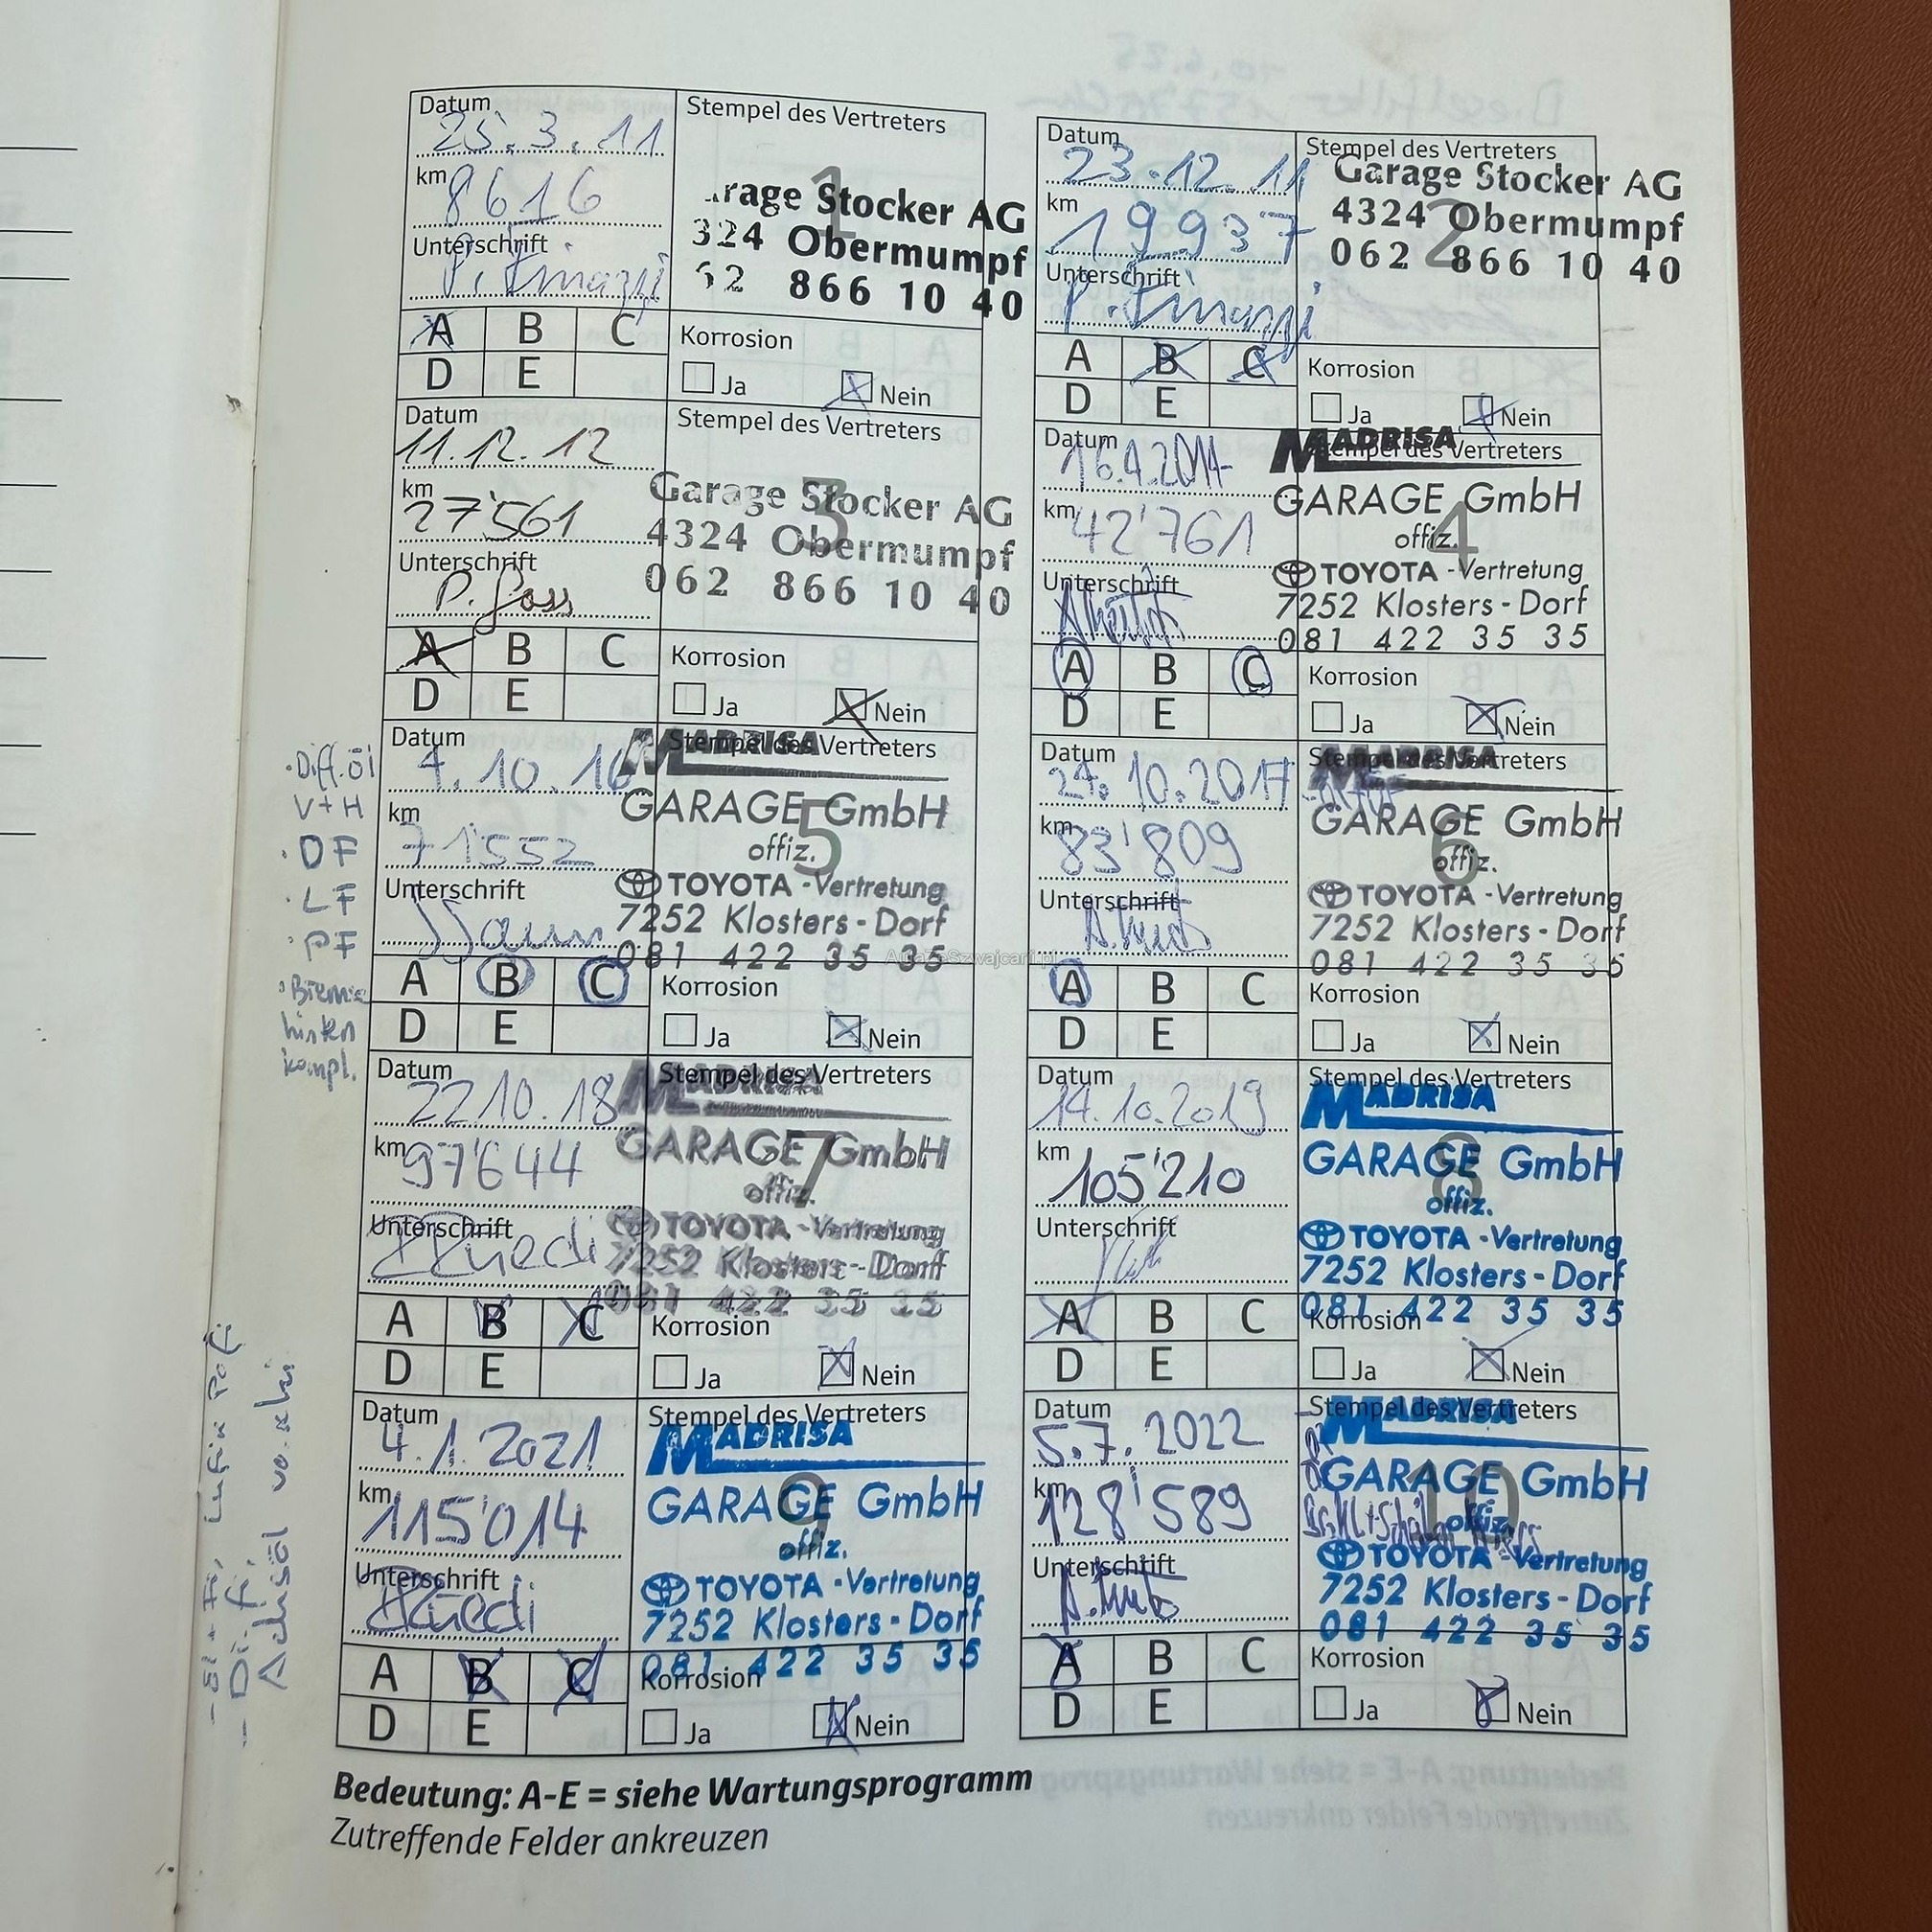 Datum
25.3.11
km
8616
Unterschrift
Stempel des Vertreters
1
rage Stocker AG
324 Obermumpf
62 866 10 40
A B C
D E
Korrosion
Ja Nein
Datum
23.12.11
km
19937
Unterschrift
Stempel des Vertreters
2
Garage Stocker AG
4324 Obermumpf
062 866 10 40
A B C
D E
Korrosion
Ja Nein
Datum
11.12.12
km
27'561
Unterschrift
Stempel des Vertreters
3
Garage Stocker AG
4324 Obermumpf
062 866 10 40
A B C
D E
Korrosion
Ja Nein
Datum
km
42'761
Unterschrift
MADRISA
Stempel des Vertreters
4
GARAGE GmbH
offiz.
TOYOTA - Vertretung
7252 Klosters - Dorf
081 422 35 35
A B C
D E
Korrosion
Ja Nein
· Diff.öl
V+H
· DF
· LF
· PF
· Bremse
hinten
kompl.
Datum
4.10.16
km
71'552
Unterschrift
MADRISA
Stempel des Vertreters
5
GARAGE GmbH
offiz.
TOYOTA - Vertretung
7252 Klosters - Dorf
081 422 35 35
A B C
D E
Korrosion
Ja Nein
Datum
24.10.2017
km
83'809
Unterschrift
MADRISA
Stempel des Vertreters
6
GARAGE GmbH
offiz.
TOYOTA - Vertretung
7252 Klosters - Dorf
081 422 35 35
A B C
D E
Korrosion
Ja Nein
AutaZeSzwajcarii.pl
Datum
22.10.18
km
97'644
Unterschrift
MADRISA
Stempel des Vertreters
7
GARAGE GmbH
offiz.
TOYOTA - Vertretung
7252 Klosters - Dorf
081 422 35 35
A B C
D E
Korrosion
Ja Nein
Datum
14.10.2019
km
105'210
Unterschrift
Stempel des Vertreters
MADRISA
8
GARAGE GmbH
offiz.
TOYOTA - Vertretung
7252 Klosters - Dorf
081 422 35 35
A B C
D E
Korrosion
Ja Nein
Datum
4.1.2021
km
115'014
Unterschrift
Stempel des Vertreters
MADRISA
9
GARAGE GmbH
offiz.
TOYOTA - Vertretung
7252 Klosters - Dorf
081 422 35 35
A B C
D E
Korrosion
Ja Nein
Datum
5.7.2022
km
128'589
Unterschrift
Stempel des Vertreters
MADRISA
10
GARAGE GmbH
offiz.
TOYOTA - Vertretung
7252 Klosters - Dorf
081 422 35 35
A B C
D E
Korrosion
Ja Nein
Bedeutung: A-E = siehe Wartungsprogramm
Zutreffende Felder ankreuzen